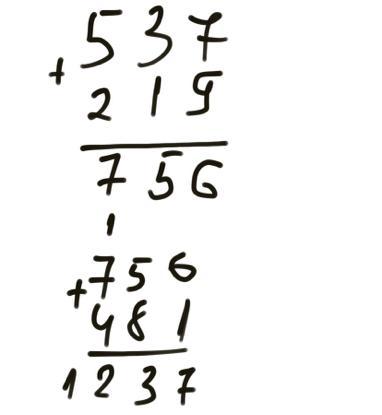 537
+
219
756
1
+756
481
1237